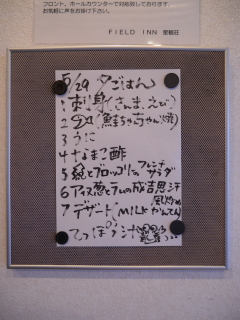 フロント、ホールカウンターで対応致しております
お気軽に声をお掛け下さい。
FIELD INN 星観荘
8/29 夕ごはん
1 刺身(さんま、えび)
2 (鮭ちゃちゃん焼)
3 うに
4 なまこ酢
5 鮭とブロッコリーのフレンチサラダ
6 アイヌ葱と
7 デザート(MILKかんてん)
てっぽう汁